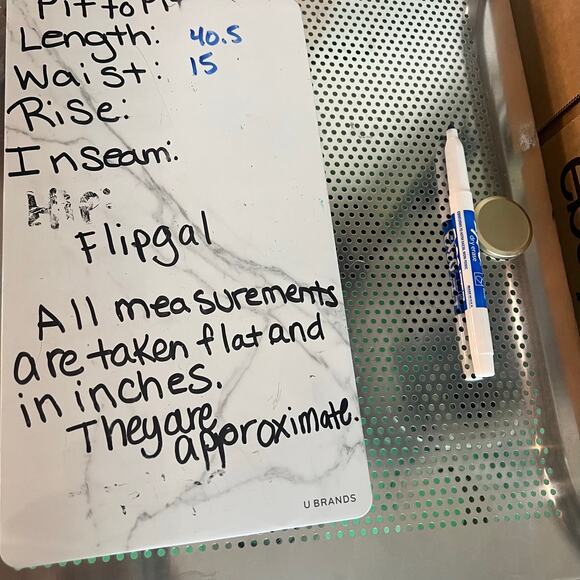 Pit to Pit
Length: 40.5
Waist: 15
Rise:
Inseam:
Hip:
Flipgal
All measurements
are taken flat and
in inches.
They are
approximate.
U BRANDS
dry erase